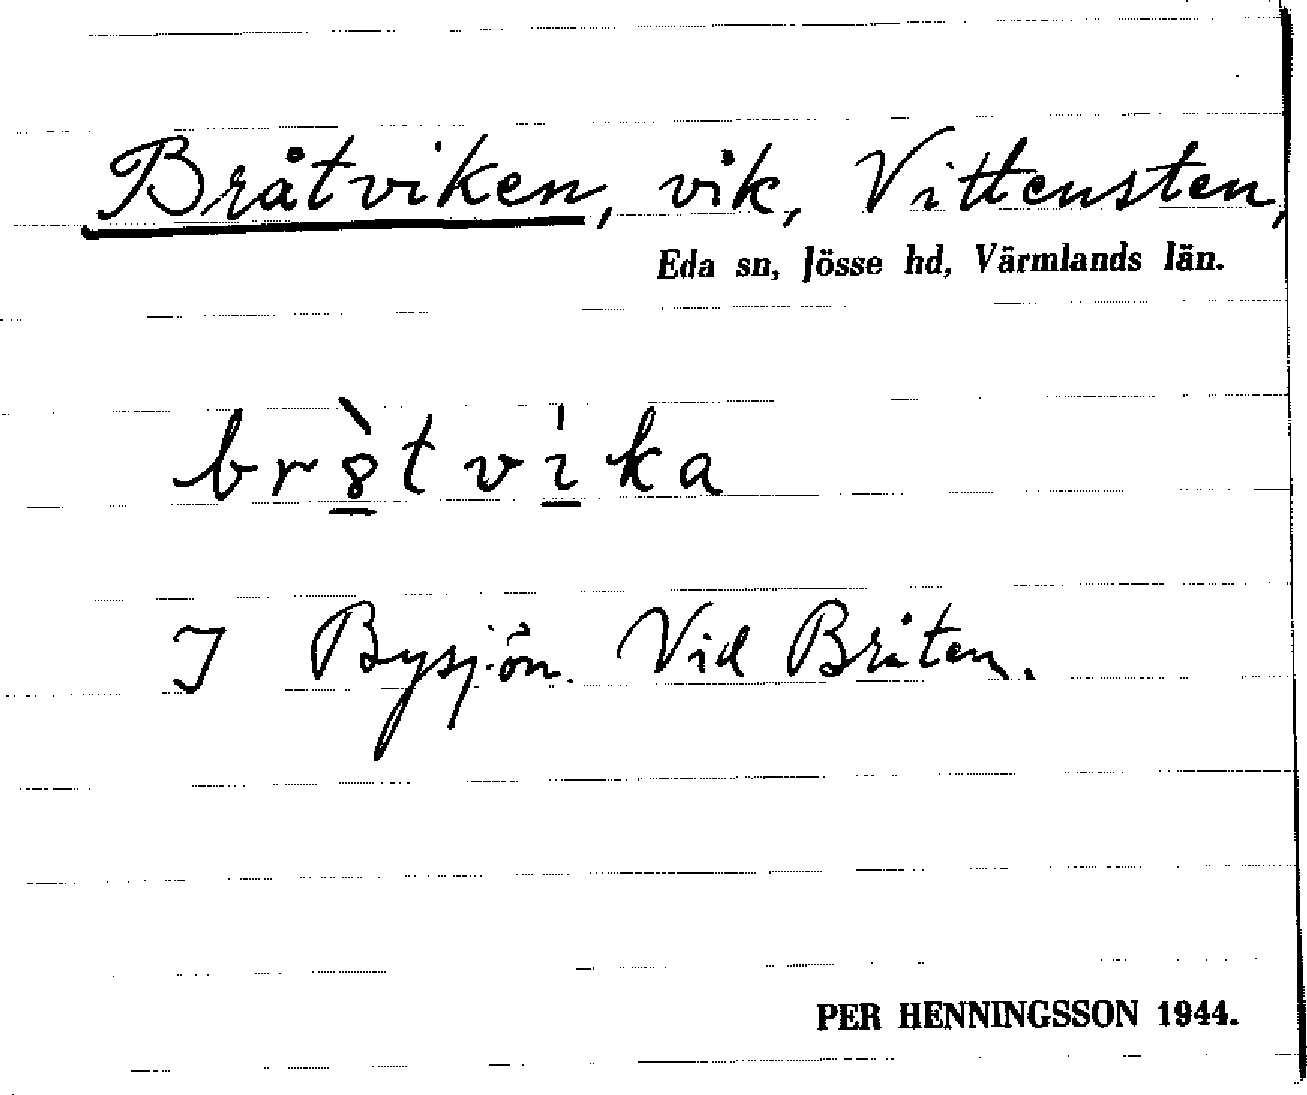 Bråtviken, vik, Vittensten,
Eda sn, Jösse hd, Värmlands län.
br8̲̀tvi̲̍ka
I Bysjön. Vid Bråten.
PER HENNINGSSON 1944.